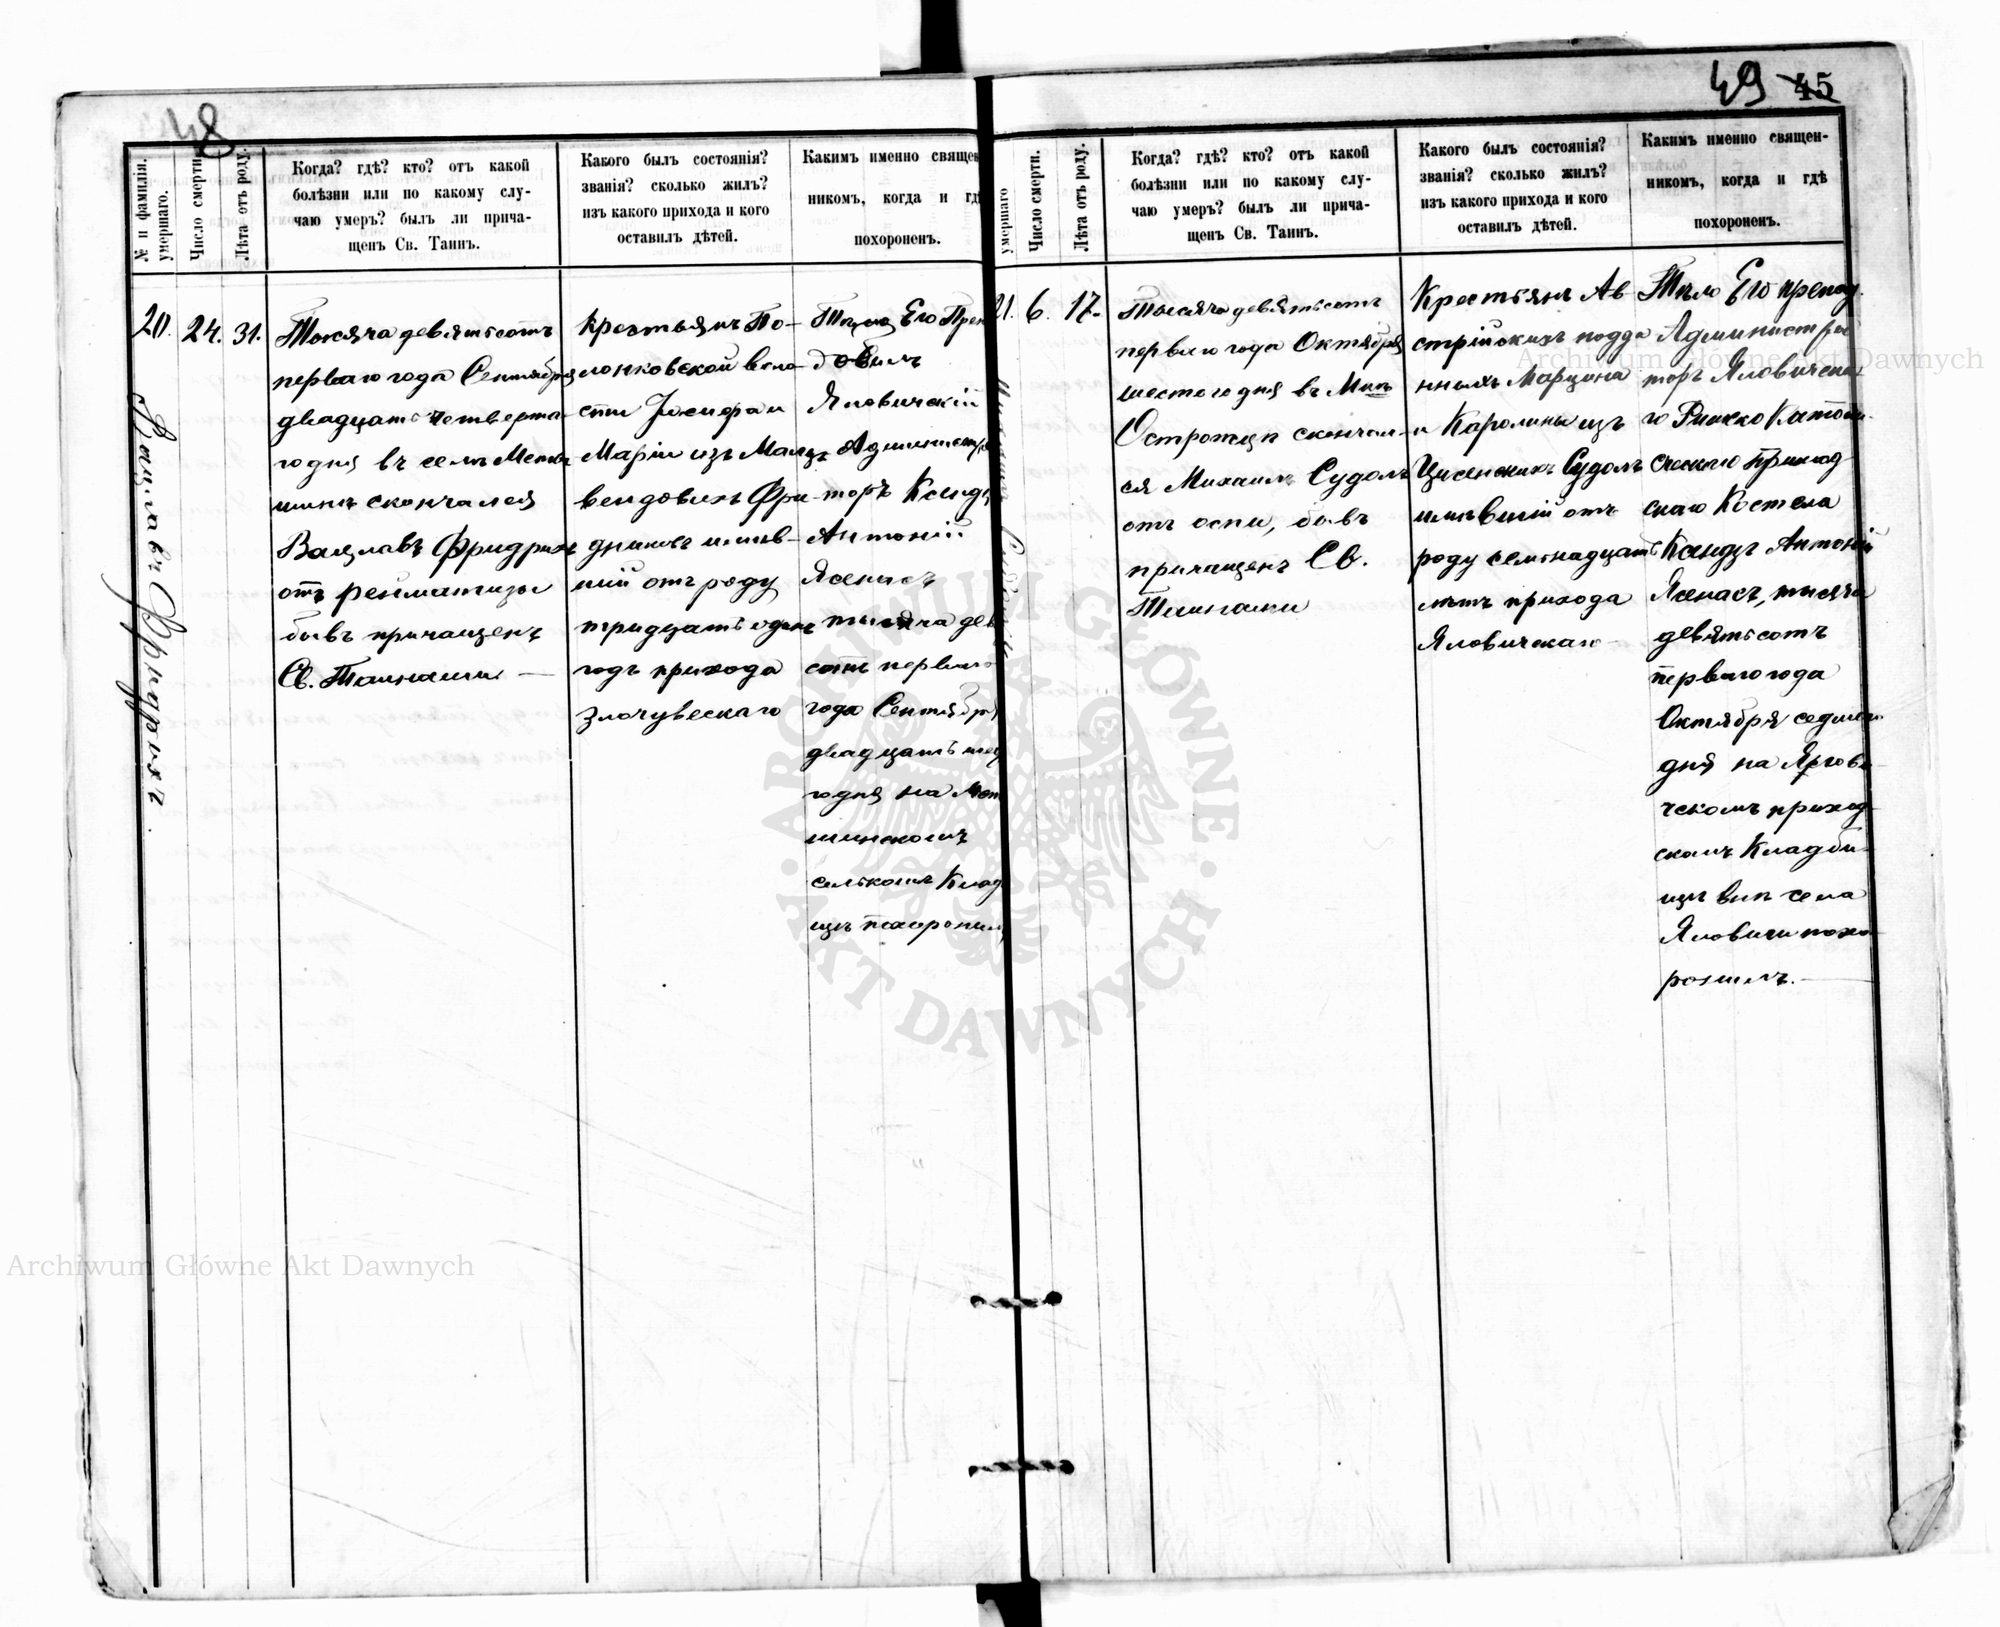 48
№ и фамилія умершаго.
Число смерти
Лѣта отъ роду.
Когда? гдѣ? кто? отъ какой
болѣзни или по какому слу-
чаю умеръ? былъ ли прича-
щенъ Св. Таинъ.
Какого былъ состоянія?
званія? сколько жилъ?
изъ какого прихода и кого
оставилъ дѣтей.
Какимъ именно священ
никомъ, когда и гдѣ
похороненъ.
20.
Вацлавъ Фридрихъ
24.
31.
Тысяча девятьсотъ
перваго года Сентября
двадцать четверта
го дня въ селѣ
скончался
Вацлавъ Фридрихъ
отъ рейматизы
бывъ причащенъ
Св. Тайнами —
крестьянъ По-
лонковской воло-
сти Іосифа и
Маріи изъ
Фри-
дриховъ имѣв-
шій отъ роду
тридцать одинъ
годъ прихода
злочувескаго
Тѣло Его Преп
добилъ
Яловичскій
Администра
торъ Ксендз
Антоній
Ясенасъ
тысяча дев
сотъ перваго
года Сентября
двадцать
го дня на
шинскомъ
сельскомъ Клад
щѣ похоронилъ
49 45
умершаго
Число смерти.
Лѣта отъ роду.
Когда? гдѣ? кто? отъ какой
болѣзни или по какому слу-
чаю умеръ? былъ ли прича-
щенъ Св. Таинъ.
Какого былъ состоянія?
званія? сколько жилъ?
изъ какого прихода и кого
оставилъ дѣтей.
Какимъ именно священ-
никомъ, когда и гдѣ
похороненъ.
21.
6.
17.
Тысяча девятьсотъ
перваго года Октября
шестого дня въ Мѣс
Острожцѣ скончал-
ся Михаилъ Судолъ
отъ оспи, бывъ
причащенъ Св.
Тайнами
Крестьянъ Ав
стрійскихъ подда
нныхъ Марцина
и Каролины изъ
Судолъ
имѣвшій отъ
роду семьнадцать
лѣтъ прихода
Яловичскаго
Тѣло Его препод
Администра
торъ Яловичска
го Римско Католи-
ческаго Приход
скаго Костела
Ксендзъ Антоній
Ясенасъ, тысяча
девятьсотъ
перваго года
Октября седмаго
дня на Ялови-
ческомъ приход-
скомъ Кладби-
щѣ внѣ села
Яловичи похо-
ронилъ. —
Archiwum Główne Akt Dawnych
ARCHIWUM GŁÓWNE · AKT DAWNYCH ·
Archiwum Główne Akt Dawnych